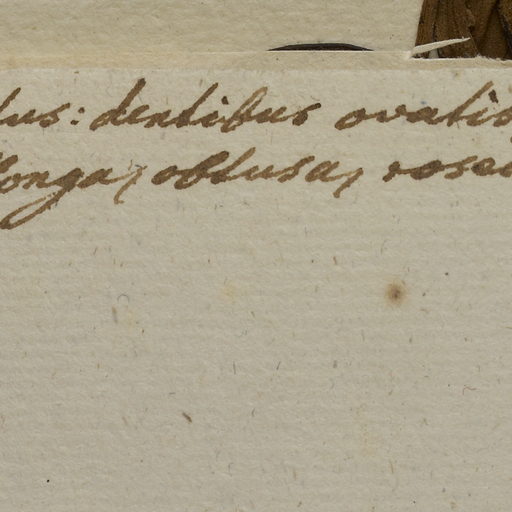 lus: dentibus ovatis
longa, obtusa, rosea